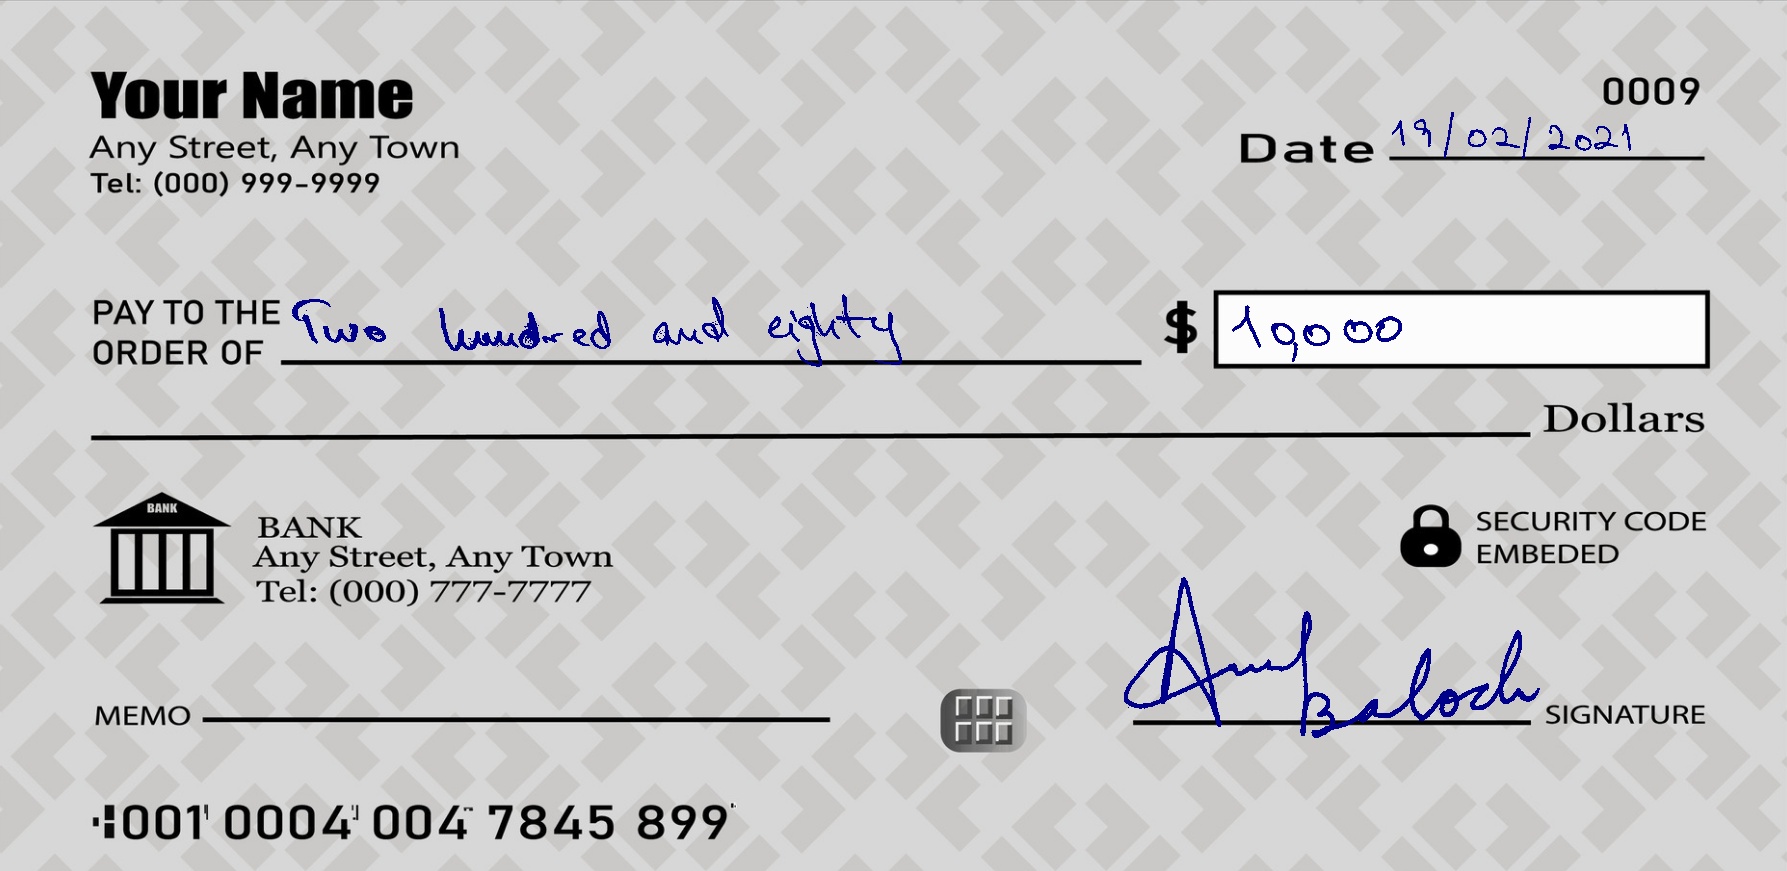 Your Name
Any Street, Any Town
Tel: (000) 999-9999
0009
Date 19/02/2021
PAY TO THE
ORDER OF Two hundred and eighty $ 10,000
Dollars
BANK
BANK
Any Street, Any Town
Tel: (000) 777-7777
SECURITY CODE
EMBEDED
MEMO
Baloch SIGNATURE
001 0004 004 7845 899